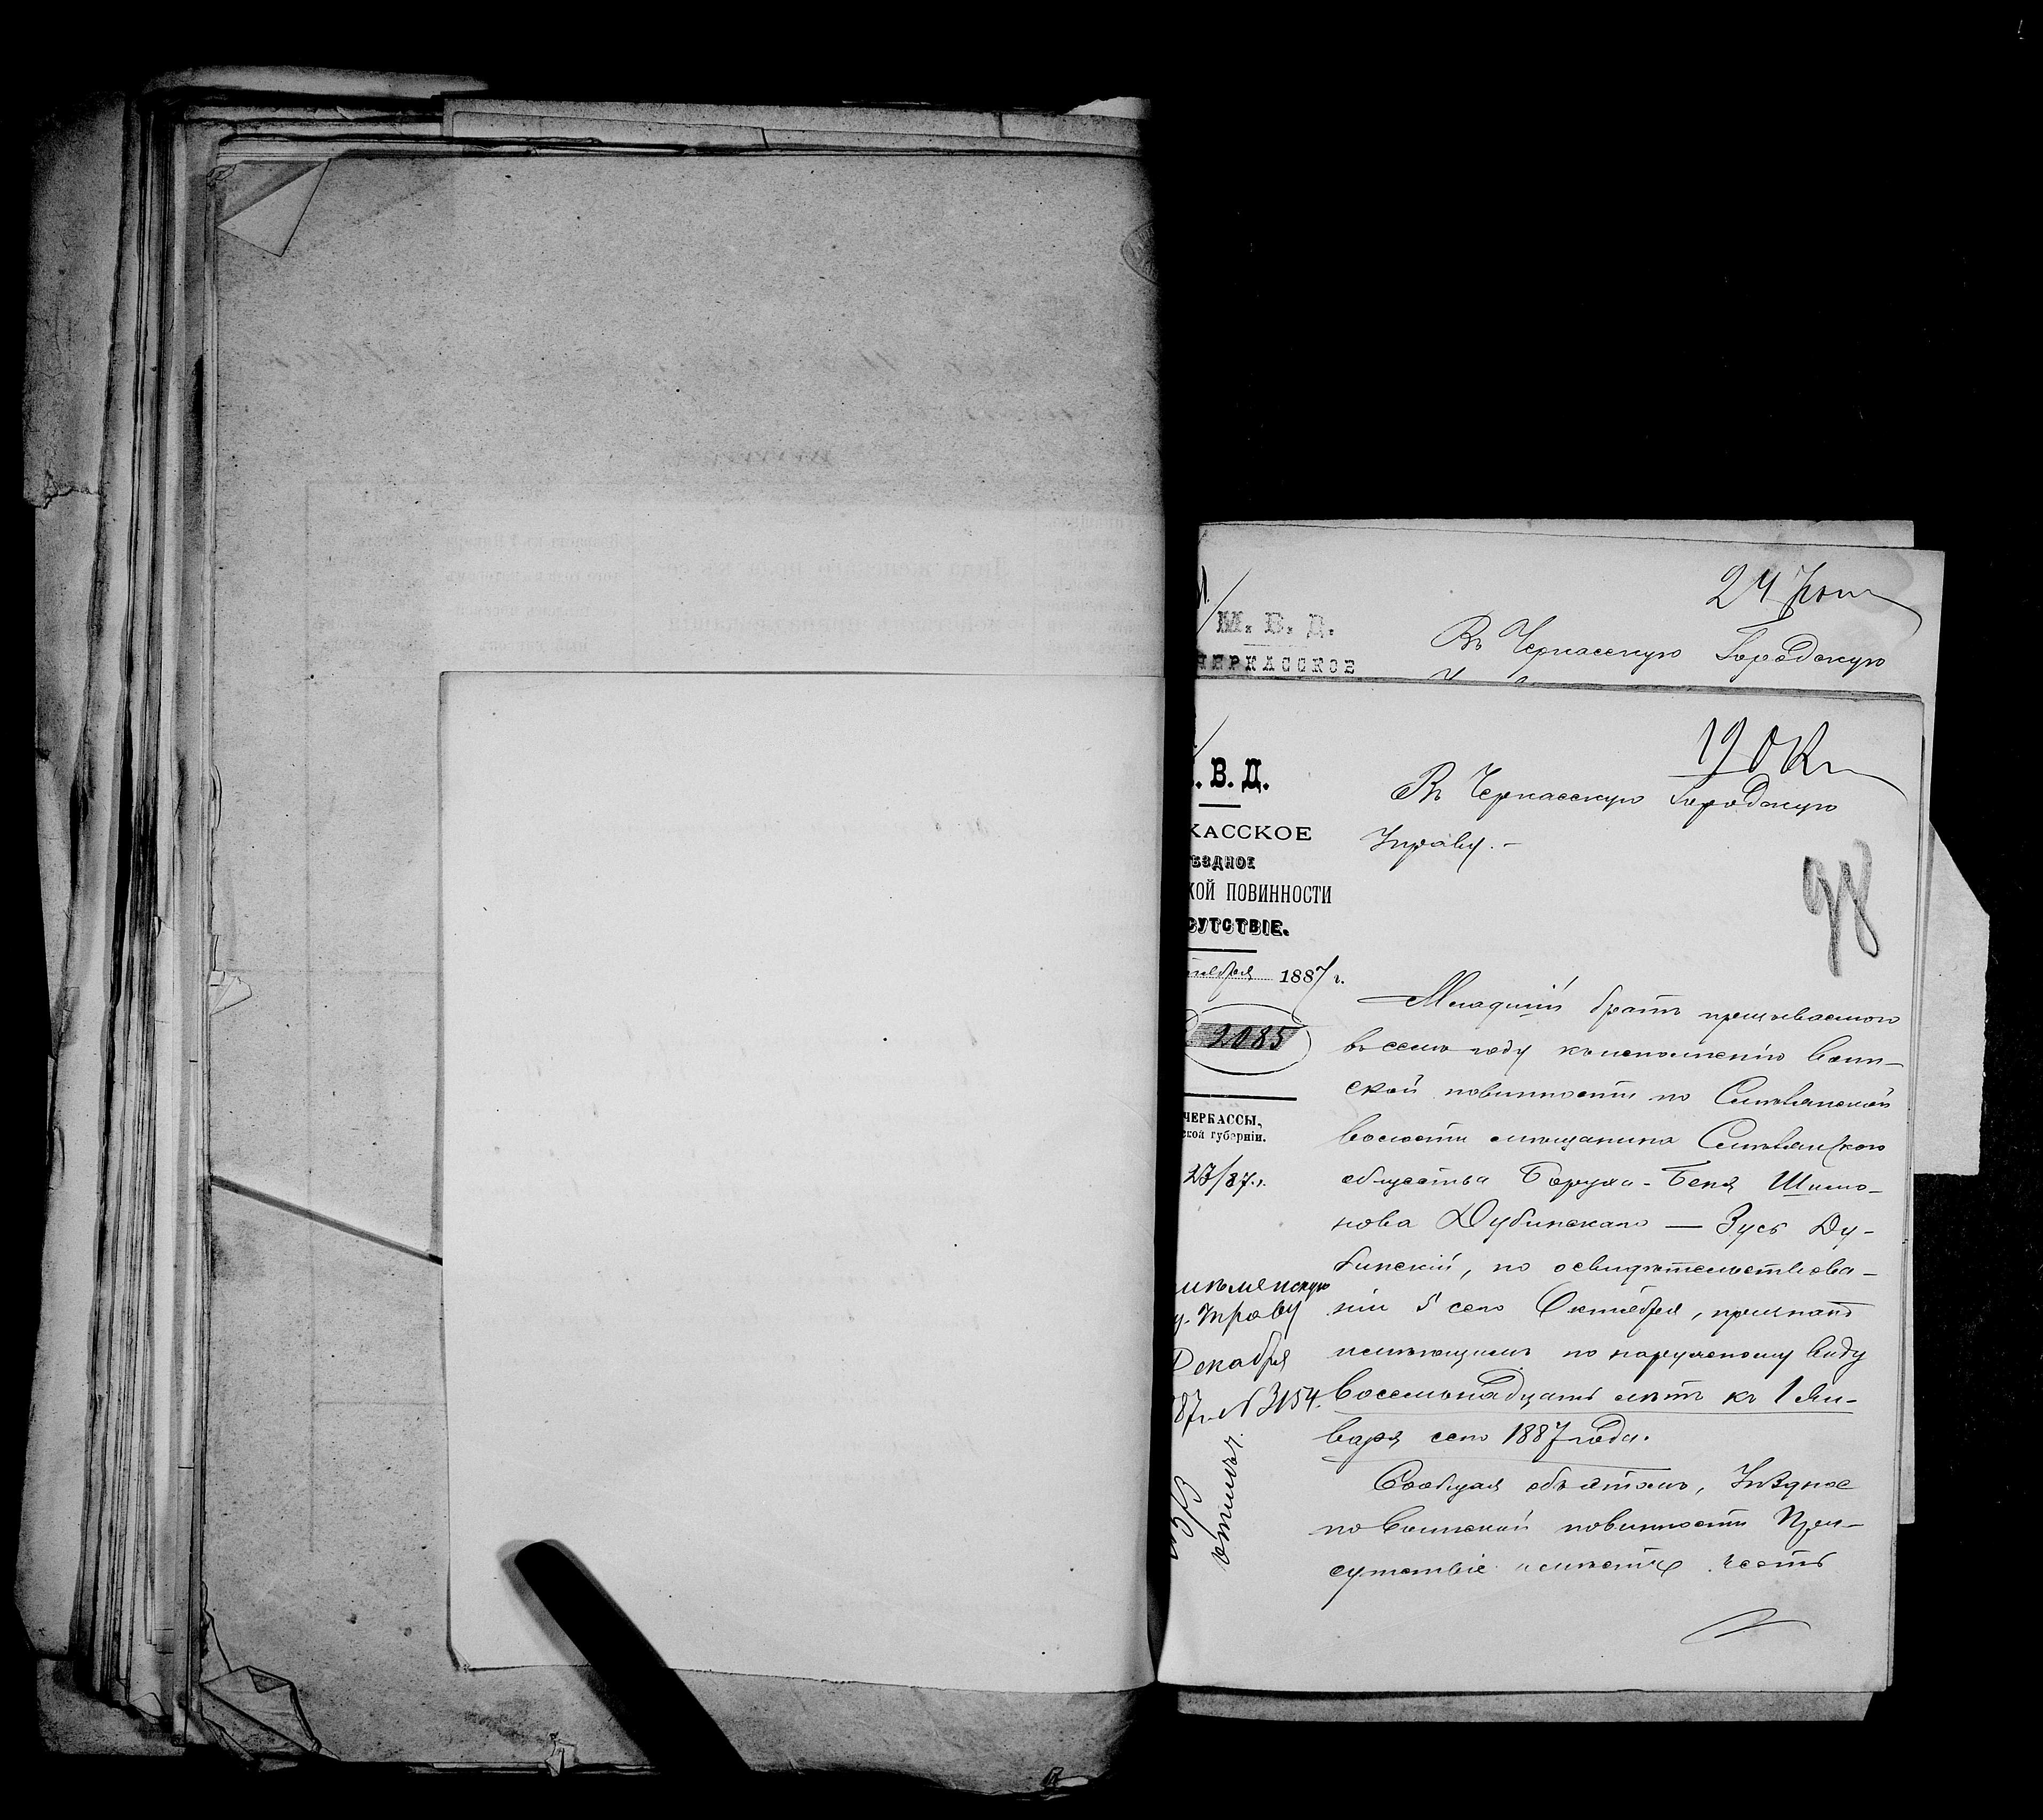 24 Іюн
М. В. Д.
ЧЕРКАССКОЕ
Въ Черкасскую Городскую
19 Окт
. В. Д.
КАССКОЕ
ѢЗДНОЕ
КОЙ ПОВИННОСТИ
СУТСТВІЕ.
тября 1887 г.
2085
ЧЕРКАССЫ,
ской губерніи.
23/87 г.
Въ Черкасскую Городскую
Управу. –
98
Младшій братъ призываемаго
въ семъ году къ исполненію воин-
ской повинности по Смѣлянской
волости мѣщанина Смѣлянскаго
общества Боруха-Беня Шимо-
нова Дубинскаго — Зусь Ду-
бинскій, по освидѣтельствова-
ніи 5 сего Октября, признанъ
имѣющимъ по наружному виду
восемьнадцать лѣтъ къ 1 Ян-
варя сего 1887 года.
Сообщая объ этомъ, Уѣздное
по воинской повинности При-
сутствіе имѣетъ честь
Управу
Декабря
87 г. № 3154.